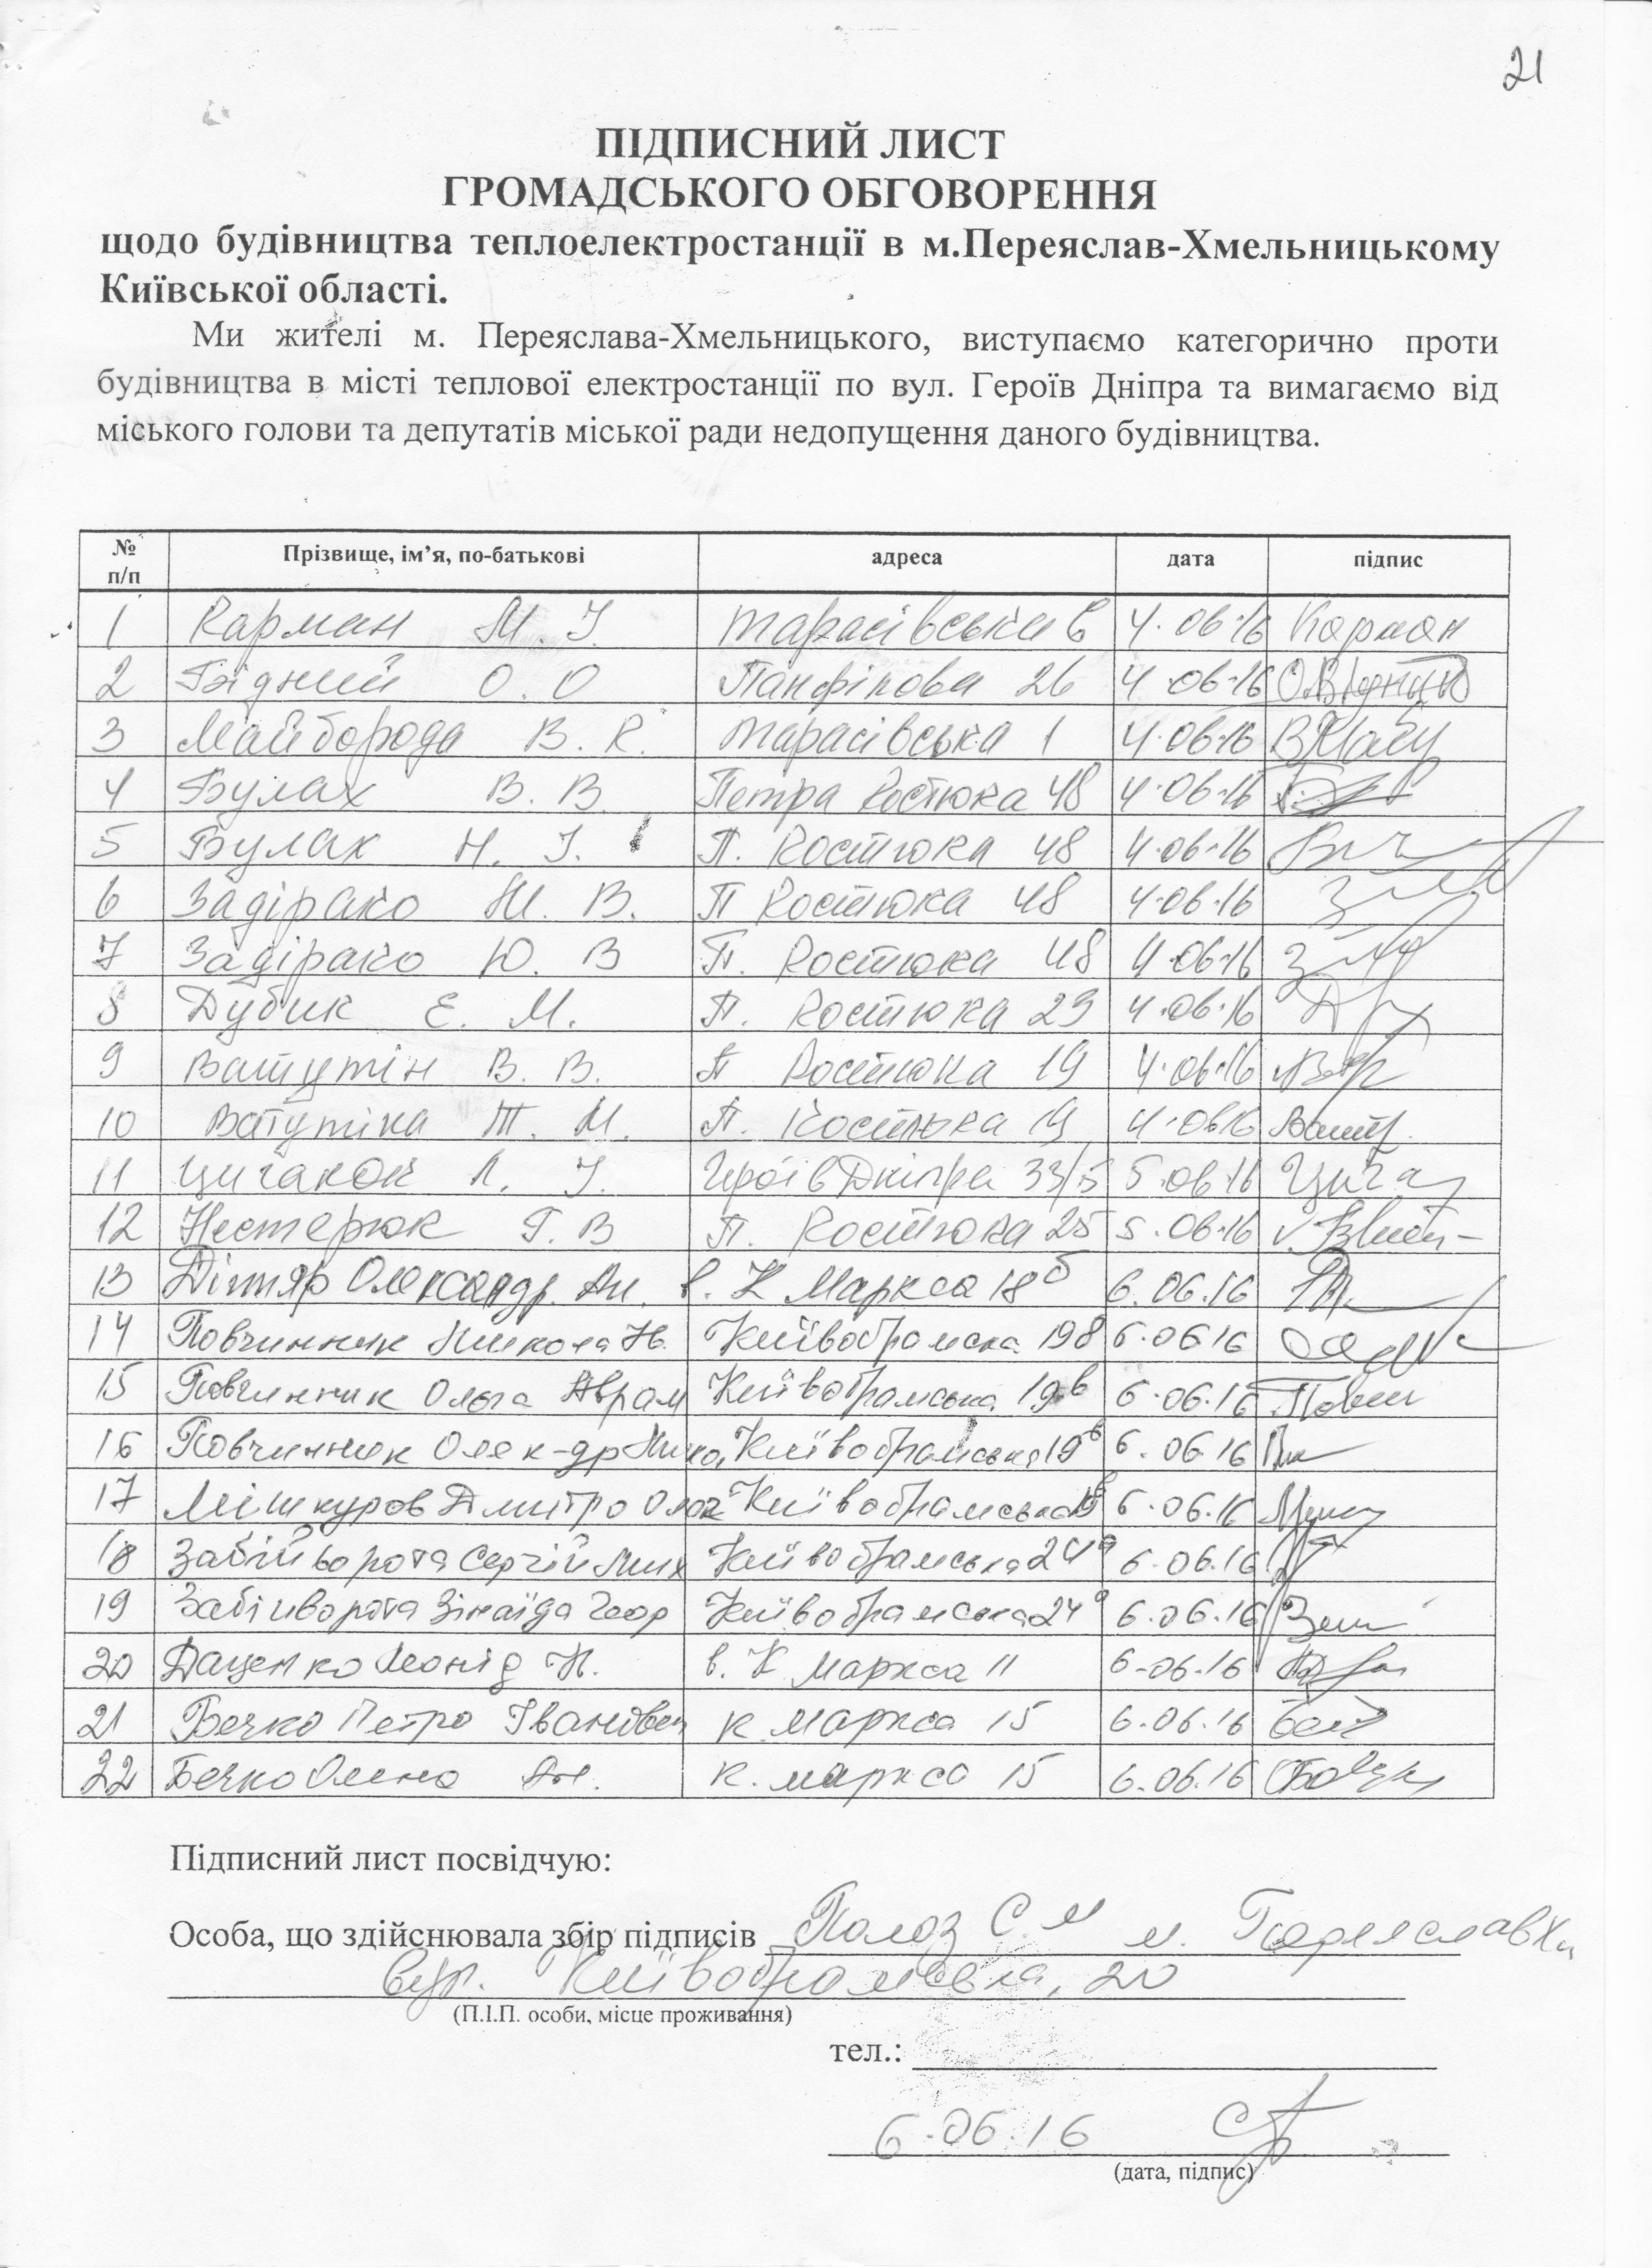 21
ПІДПИСНИЙ ЛИСТ
ГРОМАДСЬКОГО ОБГОВОРЕННЯ
щодо будівництва теплоелектростанції в м.Переяслав-Хмельницькому
Київської області.
Ми жителі м. Переяслава-Хмельницького, виступаємо категорично проти
будівництва в місті теплової електростанції по вул. Героїв Дніпра та вимагаємо від
міського голови та депутатів міської ради недопущення даного будівництва.
№ п/п Прізвище, ім’я, по-батькові адреса дата підпис
1 Карман М. І. Тарасівська 6 4.06.16 Карман
2 Бідний О. О Панфілова 26 4.06.16
3 Майборода В. К. Тарасівська 1 4.06.16
4 Булах В. В. Петра Костюка 48 4.06.16
5 Булах Н. І. П. Костюка 48 4.06.16
6 Задірако М. В. П Костюка 48 4.06.16
7 Задірако Ю. В П. Костюка 48 4.06.16
8 Дубик Е. М. П. Костюка 29 4.06.16
9 Ватутін В. В. П Костюка 19 4.06.16
10 Ватутіна Т. М. П. Костюка 19 4.06.16
11 Циганок Л. І. Героїв Дніпра 33/5 5.06.16
12 Нестерюк Г. В П. Костюка 25 5.06.16
13 Дігтяр Олександр Ан. в. К Маркса 18 б 6.06.16
14 Повчинник Микола Н. Київобрамська 19в 6.06.16
15 Повчинник Ольга Аврам Київобрамська 19в 6.06.16
16 Повчинник Олек-др Мико Київобрамська 19в 6.06.16
17 Мішкуров Дмитро Київобрамська 19в 6.06.16
18 Забійворота Сергій Мих Київобрамська 24а 6.06.16
19 Забійворота Зінаїда Геор Київобрамська 24а 6.06.16
20 Даценко Леонід Н. в. К Маркса 11 6.06.16
21 Бечко Петро Іванович К Маркса 15 6.06.16
22 Бечко Олена К. Маркса 15 6.06.16
Підписний лист посвідчую:
Особа, що здійснювала збір підписів Полоз С. М м. Переяслав Хм
вул. Київобрамська, 20
(П.І.П. особи, місце проживання)
тел.:
6.06.16
(дата, підпис)